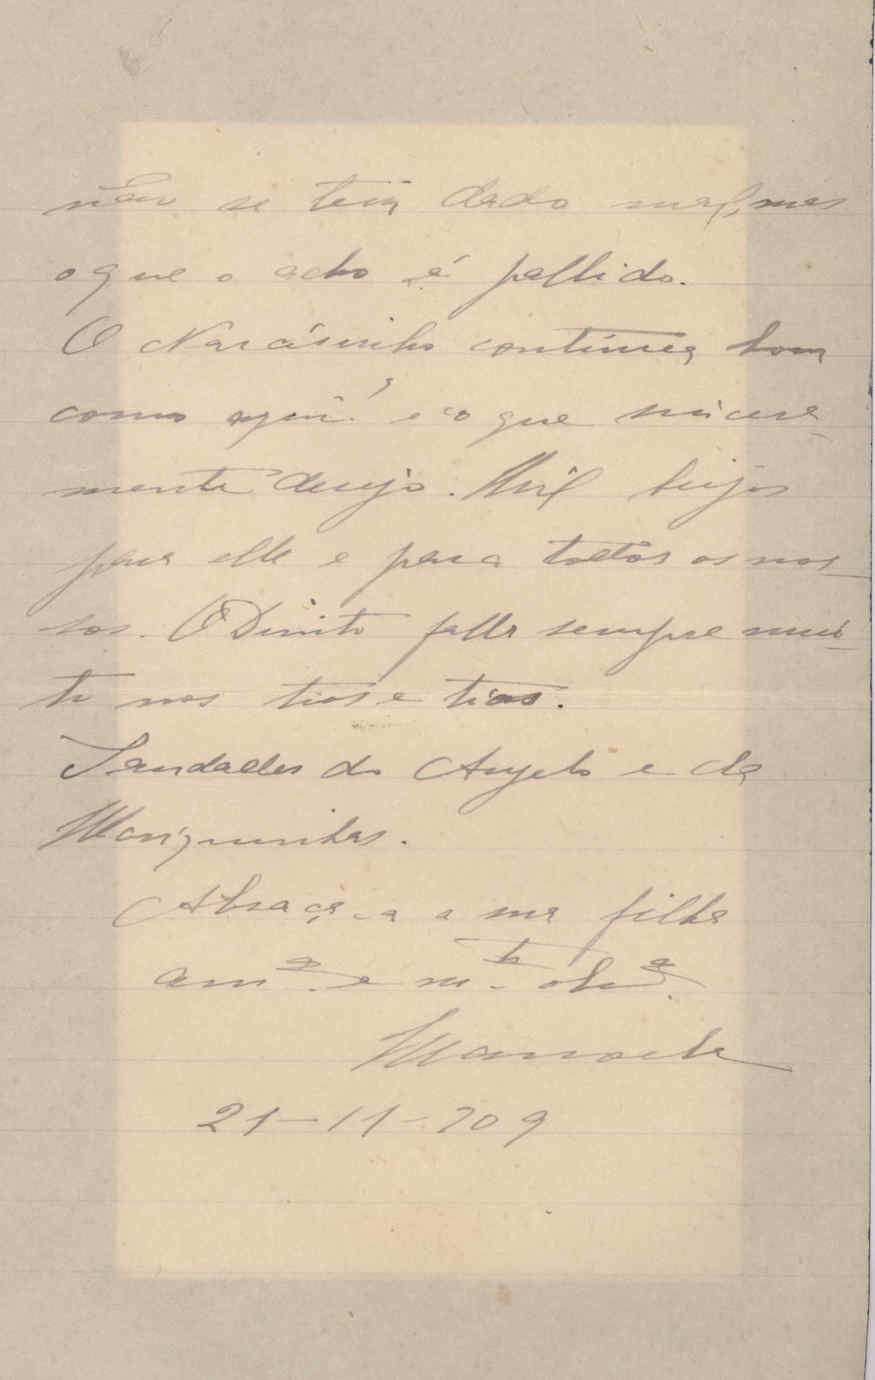 não se tem dado mal, mas
o que o acho é pallido.
O Narcisinho continúa bom
como aqui? é o que sincera-
mente desejo. Mil beijos
para elle e para todos os nos-
sos. O Dinito falla sempre mui-
to nos tios e tias.
Saudades do Angelo e da
Mariquinhas.
Abraça-a a sua filha
am.ª e m.to obr.ª
Manoela
21-11-909